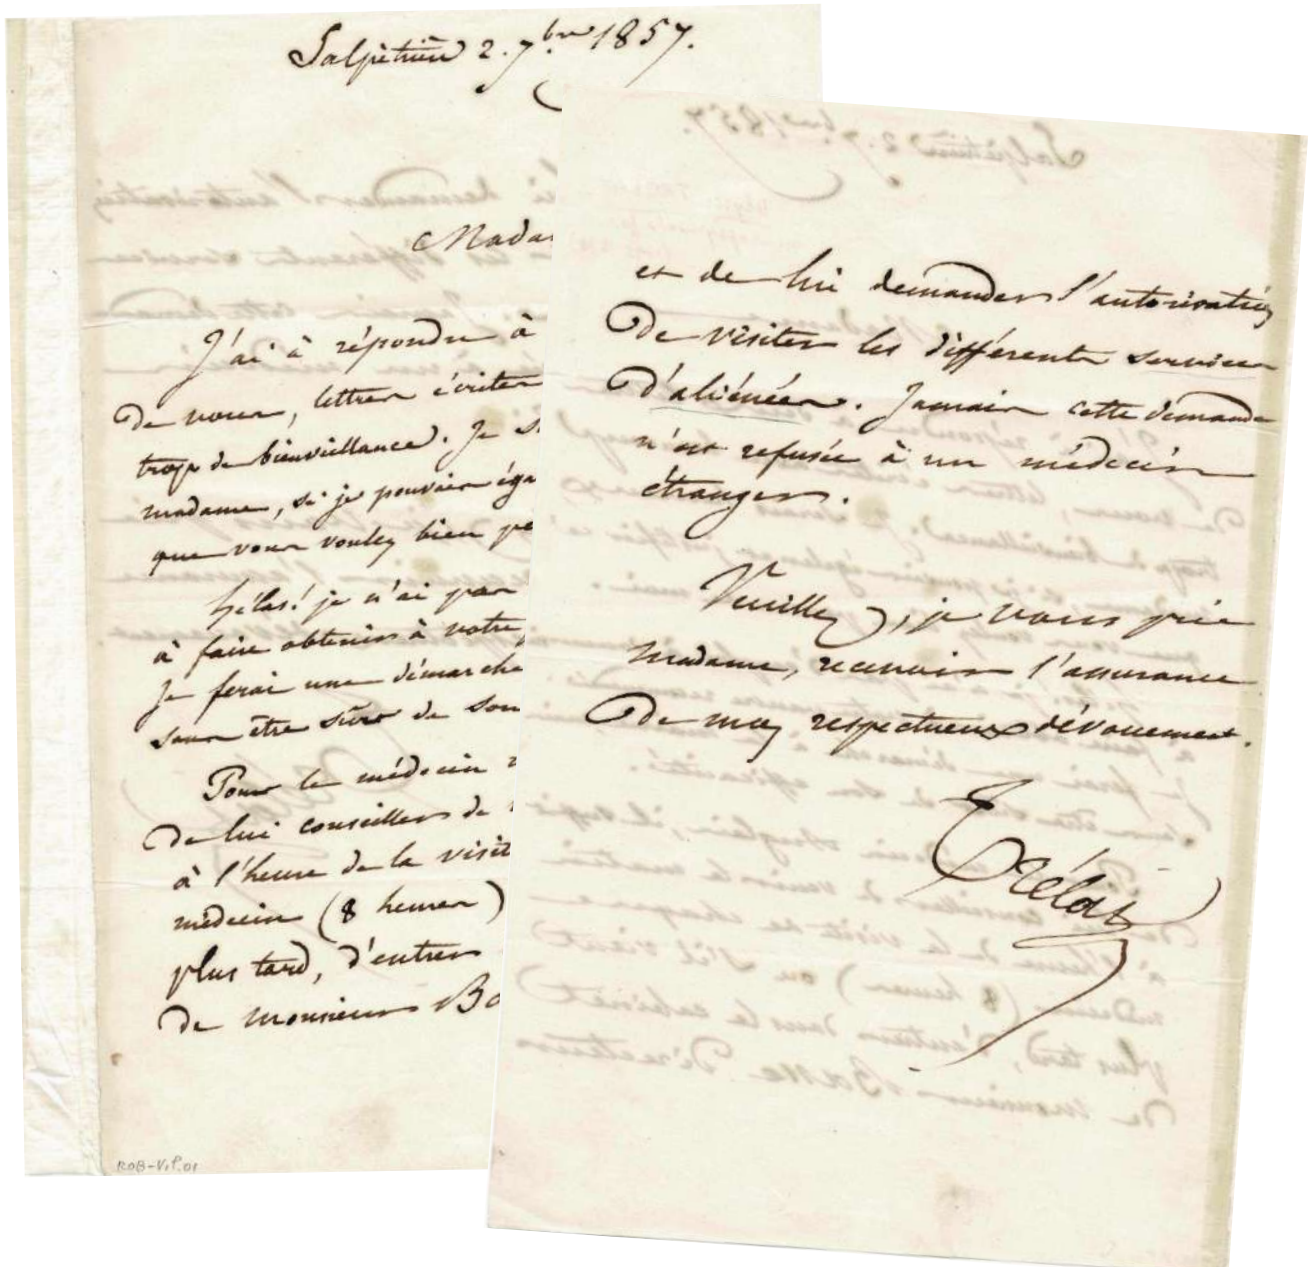 Salpêtrière 2. 7bre 1857.
Mada
J'ai à répondre à
de vous, lettres écrites
trop de bienveillance. Je s
madame, si je pouvais éga
que vous voulez bien pe
hélas! je n'ai pas
à faire obtenir à votre
je ferai une démarche
sans être sûr de son
Pour le médecin
de lui conseiller de
à l'heure de la visit
médecin (8 heures)
plus tard, d'entrer
de monsieur Ba
ROB-Vif.01
et de lui demander l'autorisation
de visiter les différents services
d'aliénées. Jamais cette demande
n'est refusée à un médecin
étranger.
Veuillez, je vous prie
madame, recevoir l'assurance
de mon respectueux dévouement.
Trélat